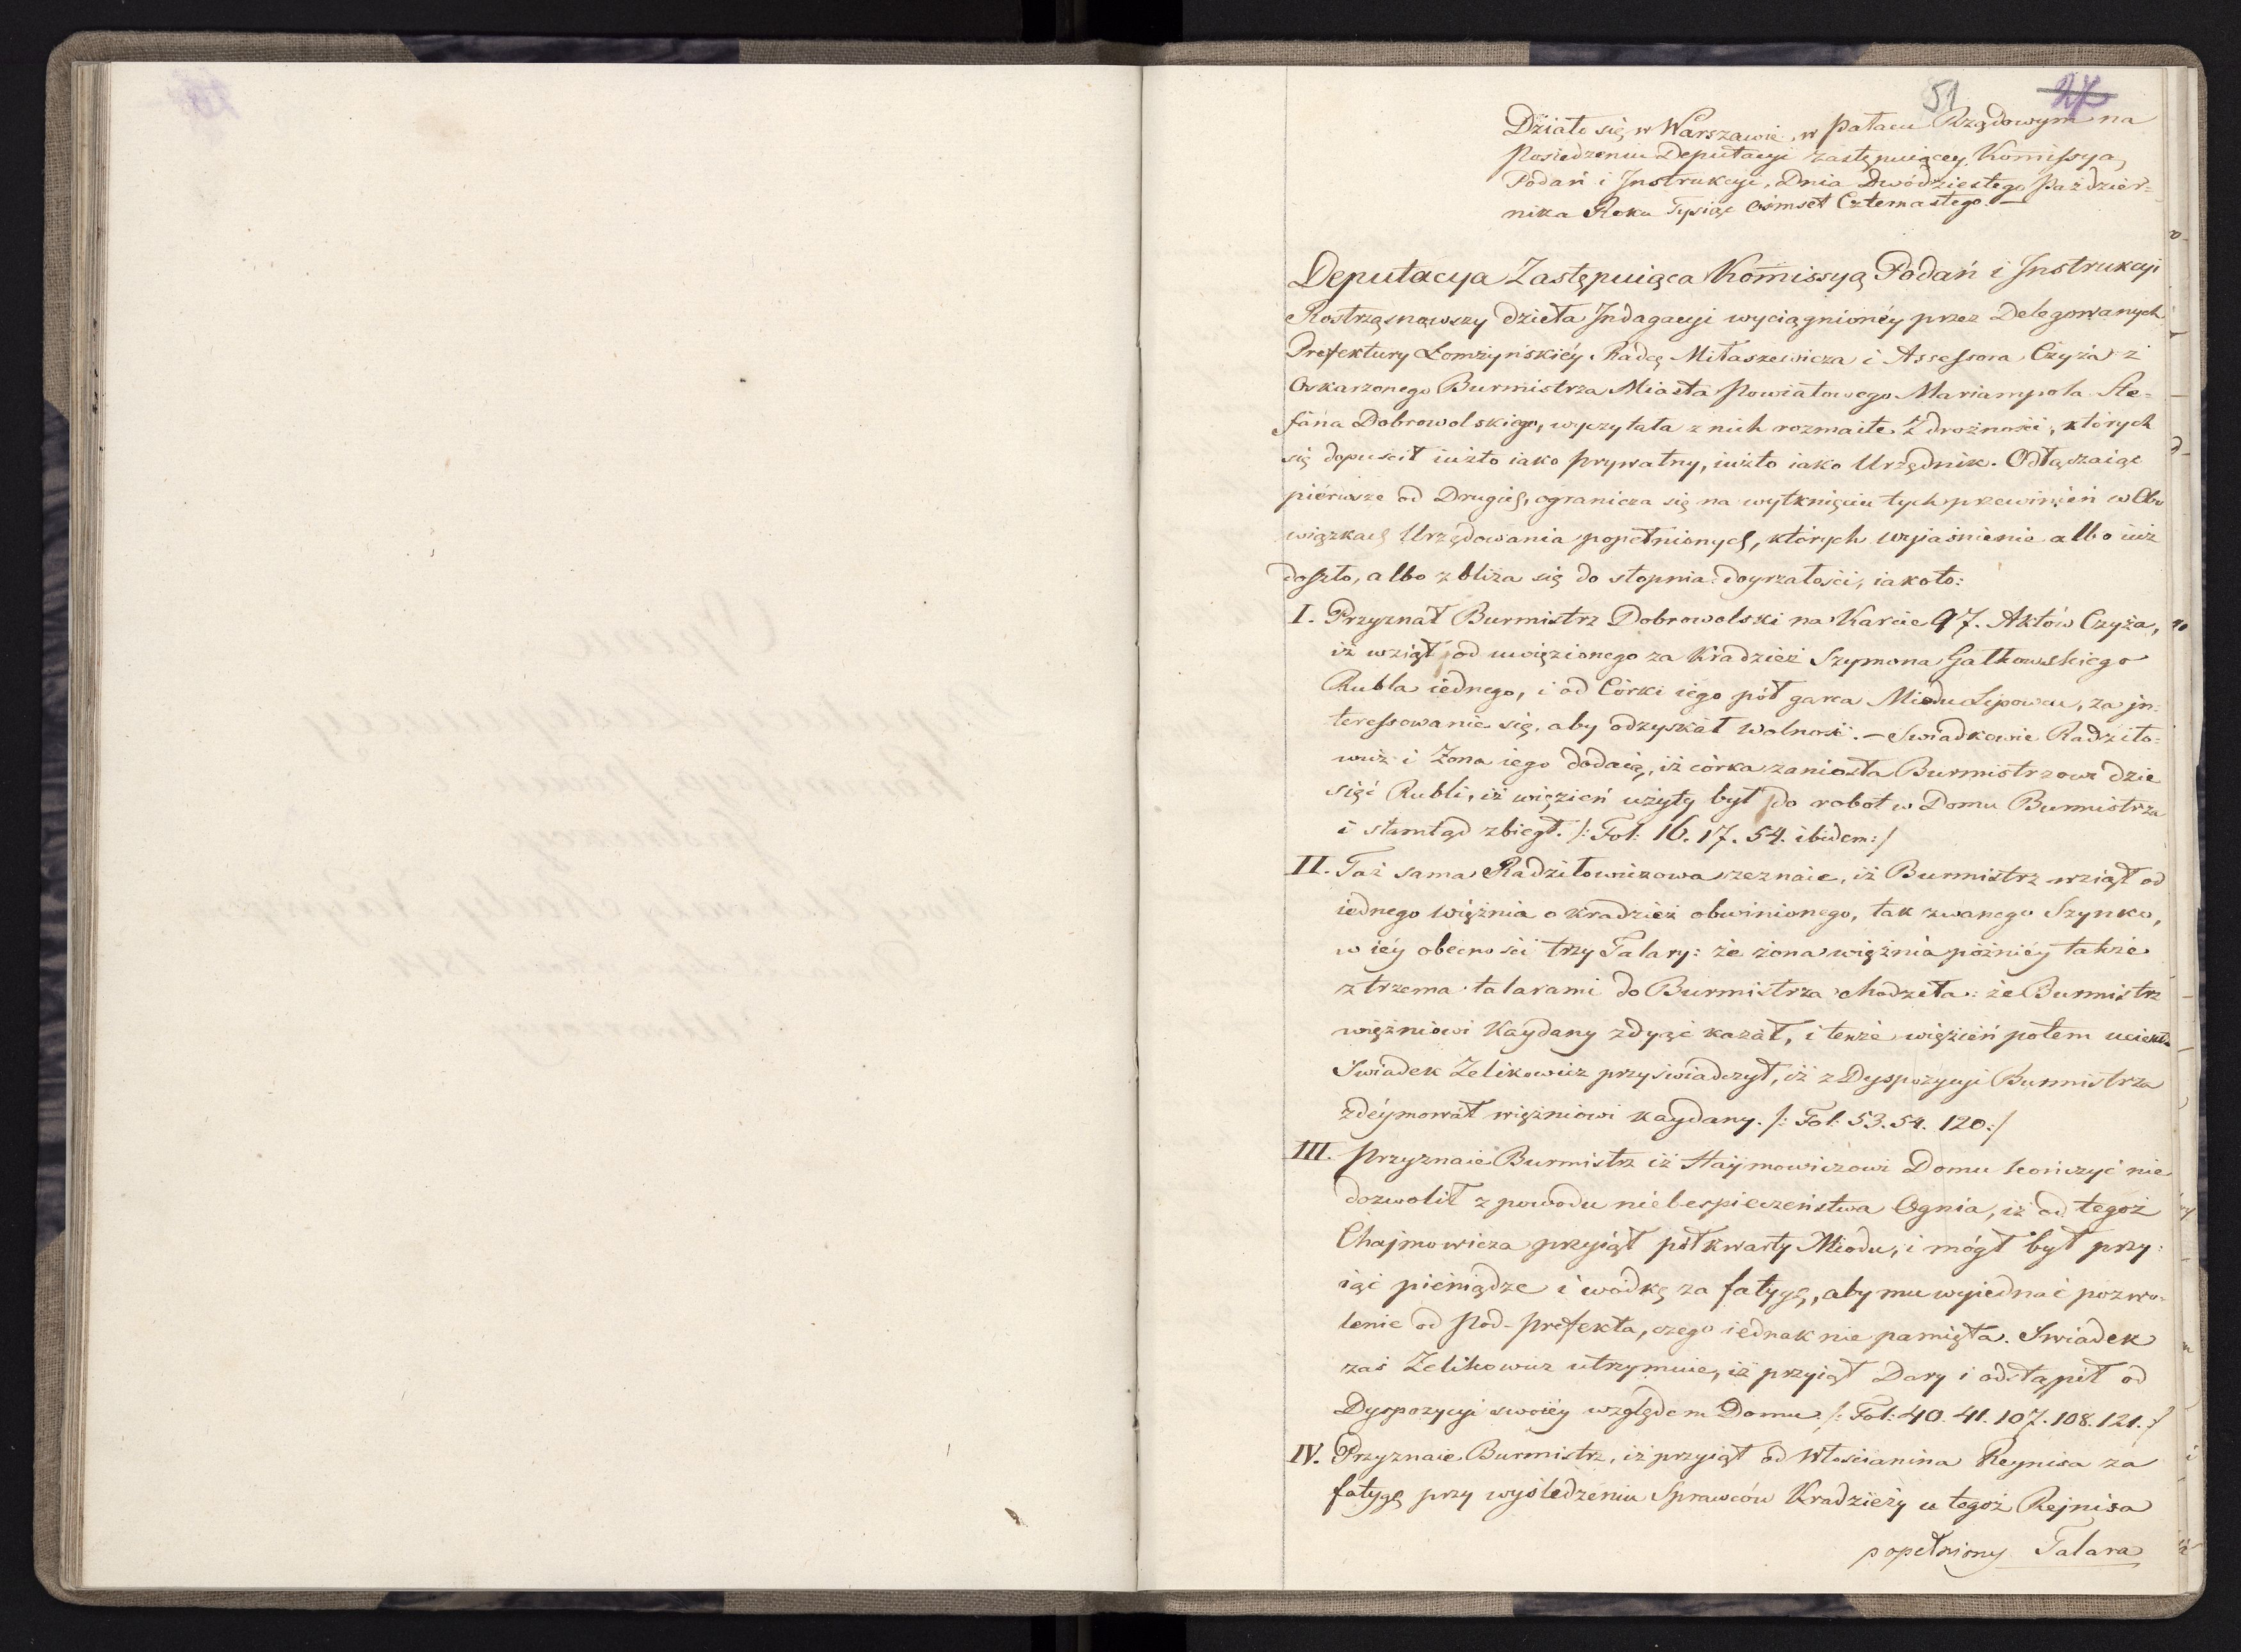 51 27
Działo się w Warszawie, w Pałacu Rządowym na
Posiedzeniu Deputacyi zastępuiącey Komissyą
Podań i Instrukcyi, Dnia Dwódziestego Paździer=
nika Roku Tysiąc Ośmset Czternastego.—
Deputacya Zastępuiąca Komissyą Podań i Instrukcyi
Rostrząsnąwszy dzieła Indagacyi wyciągnionéy przez Delegowanych
Prefektury Łomżyńskiéy Radcę Miłaszewicza i Assessora Czyża z
Oskarzonego Burmistrza Miasta Powiatowego Mariampola Ste=
fana Dobrowolskiego, wyczytała z nich rozmaite Zdrożności, których
się dopuścił iużto iako prywatny, iużto iako Urzędnik. Odłączaiąc
piérwsze od Drugich, ogranicza się na wytknięciu tych przewinień w Obo
wiązkach Urzędowania popełnionych, których wyiaśnienie albo iuż
doszło, albo zbliża się do stopnia doyrzałości, iakoto:
I. Przyznał Burmistrz Dobrowolski na Karcie 97. Aktów Czyża,
iż wziął od uwięzionego za Kradzież Szymona Gałkowskiego
Rubla iednego, i od Córki iego pół garca Miodu Lipowcu, za in=
teressowanie się, aby odzyskał wolność.— Swiadkowie Radziło=
wicz i Zona iego dodaią, iż córka zaniosła Burmistrzowi dzie
sięć Rubli, iż więzień użyty był do robot w Domu Burmistrza
i stamtąd zbiegł. /: Fol: 16. 17. 54. ibidem:/
II. Taż sama Radziłowiczowa zeznaie, iż Burmistrz wziął od
iednego więźnia o kradzież obwinionego, tak zwanego Szynko,
w iéy obecności trzy Talary: że żona więźnia późniéy także
z trzema talarami do Burmistrza chodzeła: że Burmistrz
więźniowi Kaydany zdyąć kazał, i tenże więzień potem uciekł.
Swiadek Zelikowicz przyświadczył, iż z Dyspozycyi Burmistrza
zdéymował więźniowi kaydany. /: Fol: 53. 54. 120:/
III. Przyznaie Burmistrz iż Haymowiczowi Domu kończyć nie
dozwolił z powodu niebespieczeństwa Ognia, iż od tegoż
Chajmowicza przyiął pół kwarty Miodu, i mógł był przy=
iąć pieniądze i wódkę za fatygę, aby mu wyiednać pozwo=
lenie od Pod-Prefekta, czego iednak nie pamięta. Swiadek
zaś Zelikowicz utrzymuie, iż przyiął Dary i odstąpił od
Dyspozycyi swoiéy względem Domu /: Fol: 40. 41. 107. 108. 121. :/
IV. Przyznaie Burmistrz, iż przyiął od Włościanina Reynisa za
fatygę przy wyśledzeniu Sprawców Kradzieży u tegoż Rejnisa
popełniony Talara